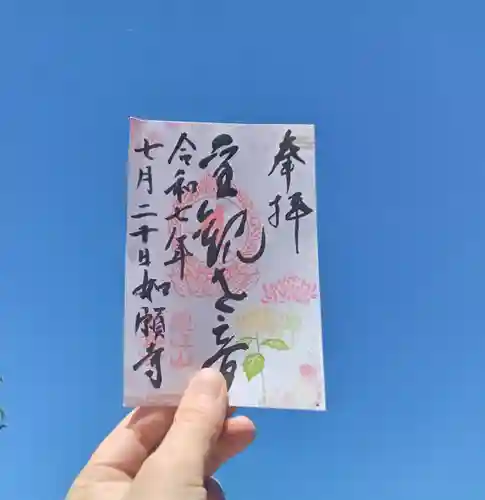 奉拝
聖観世音
令和七年
七月二十日如願寺